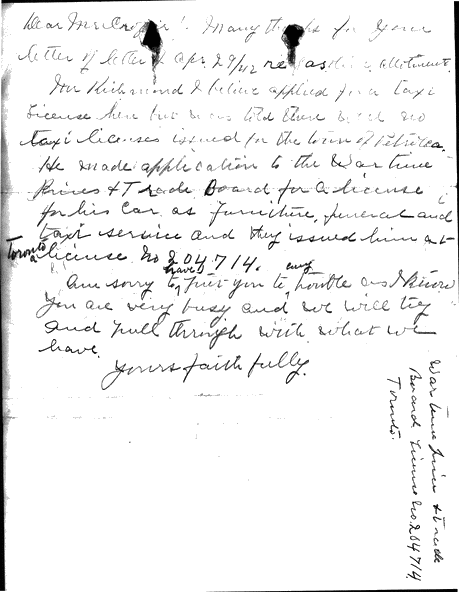 Dear Mr. Cropper! Many thanks for your
letter of letter of Apr. 29/42 re gas allotment.
Mr Richmond I believe applied for a taxi
license here but was told there were no
taxi licenses issued for the town of Petrolea.
He made application to the War time
Prices & Trade Board for a license
for his car as furniture, funeral and
taxi service and they issued him at
Toronto a license No 204714.
Am sorry to have put you to any trouble as I know
you are very busy and we will try
and pull through with what we
have.
Yours faithfully.
War time Price & Trade
Board License No 204714
Toronto.